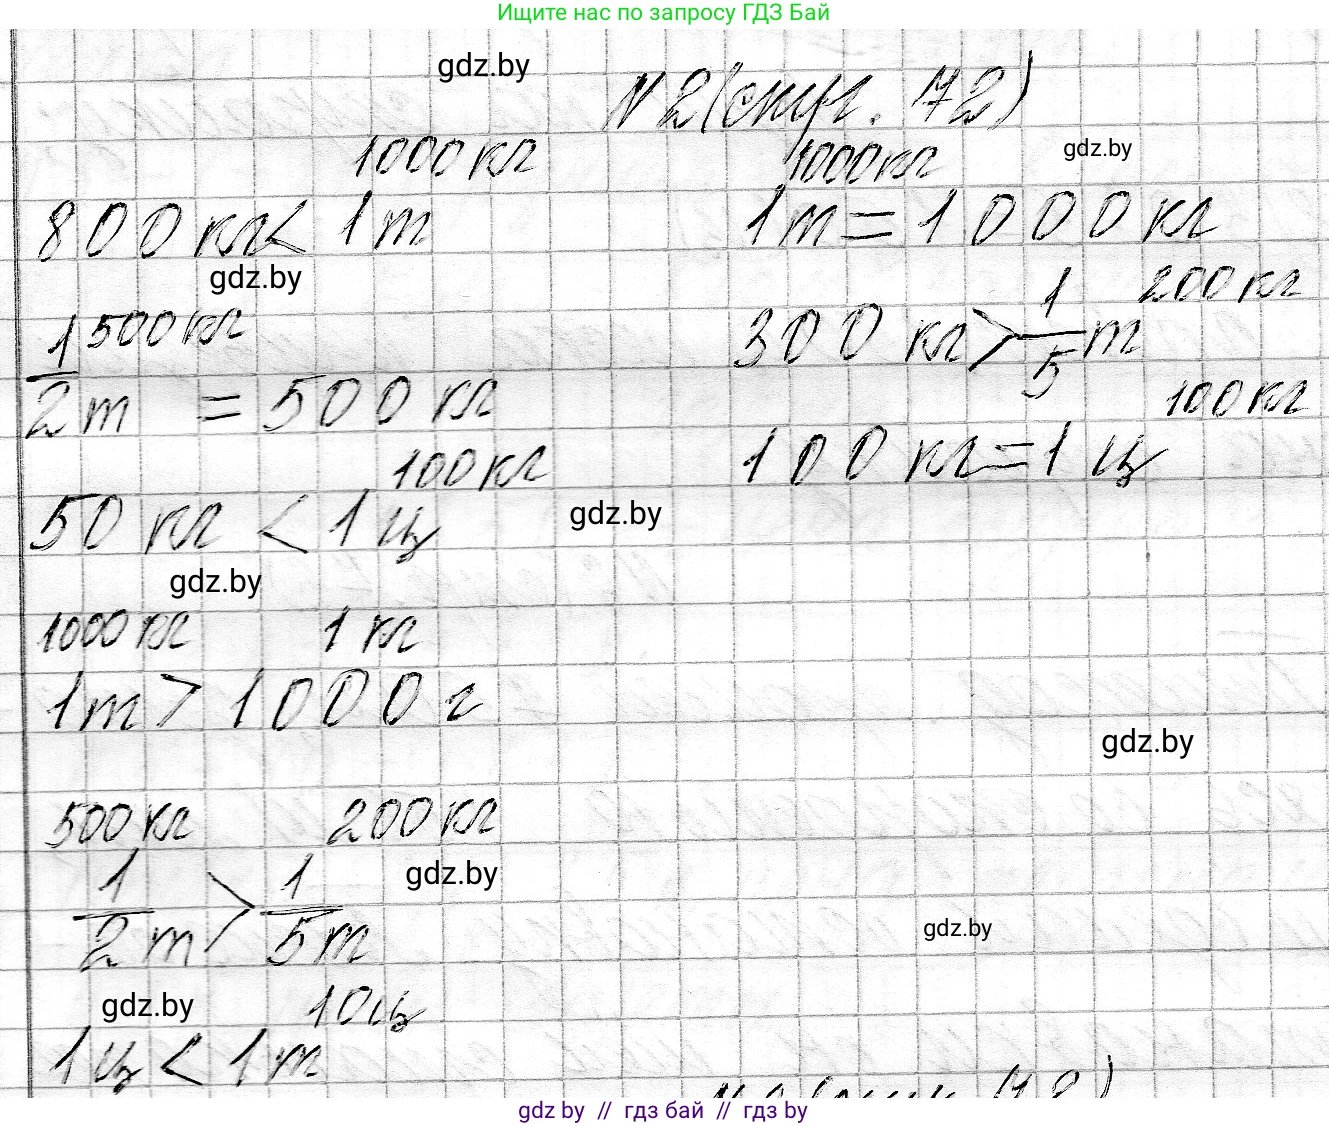 Ищите нас по запросу ГДЗ Бай
gdz.by
N 2 (стр. 72)
1000 кг
800 кг < 1 т
1000 кг
1 т = 1000 кг
gdz.by
gdz.by
500 кг
1/2 т = 500 кг
200 кг
300 кг > 1/5 т
100 кг
100 кг = 1 ц
100 кг
50 кг < 1 ц
gdz.by
gdz.by
1000 кг 1 кг
1 т > 1000 г
gdz.by
500 кг 200 кг
1/2 т > 1/5 т
gdz.by
gdz.by
gdz.by
10 ц
1 ц < 1 т
gdz by // гдз бай // гдз by